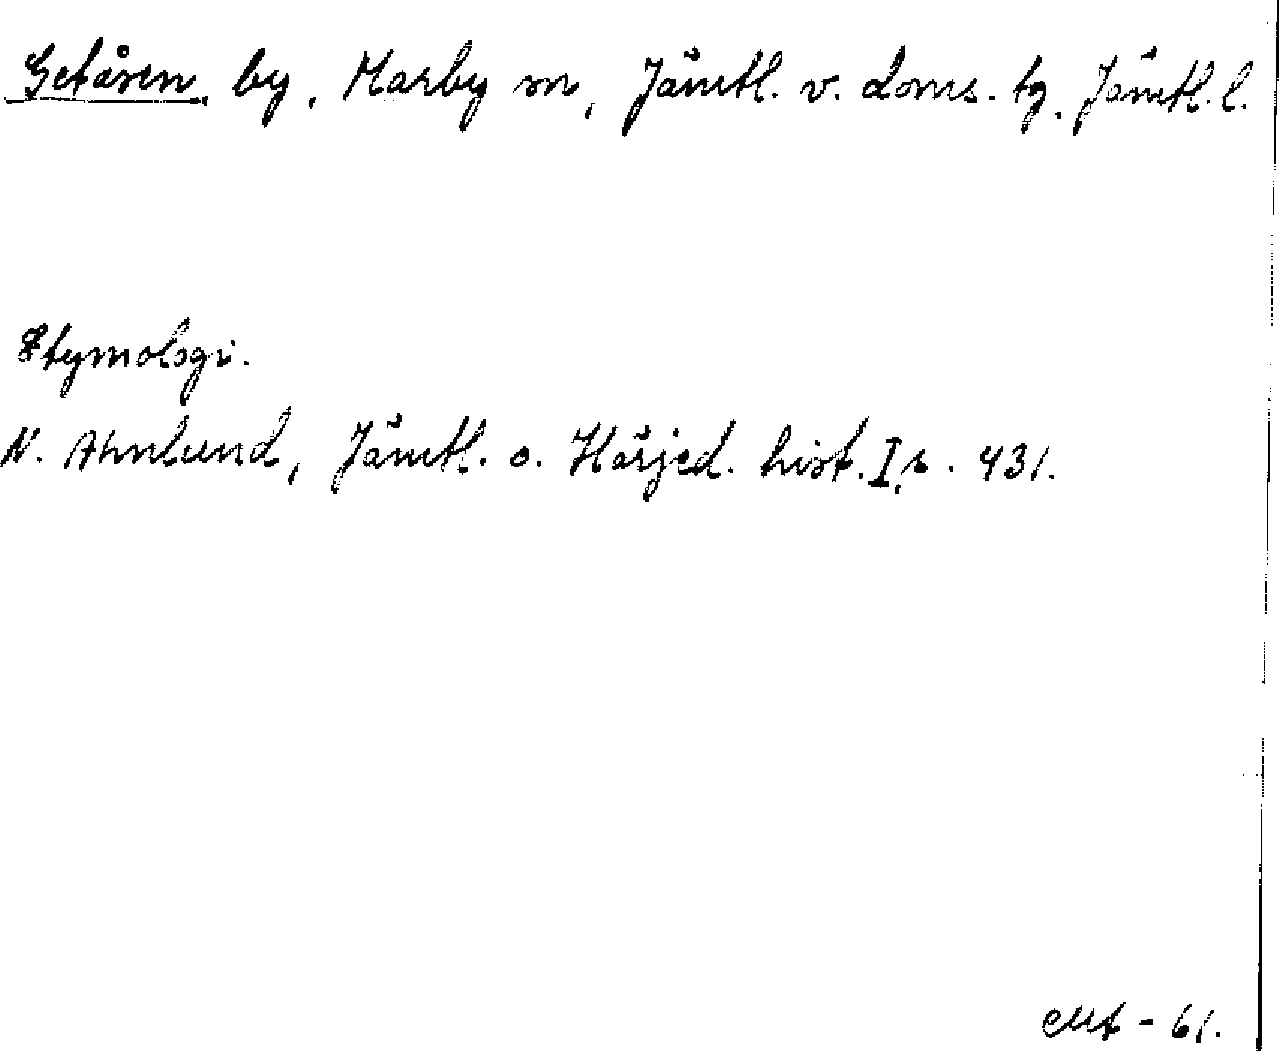 Getåsen, by, Marby sn, Jämtl. v. doms. tg. Jämtl. l.
Etymologi.
N. Ahnlund, Jämtl. o. Härjed. hist. I, s. 431.
- 61.